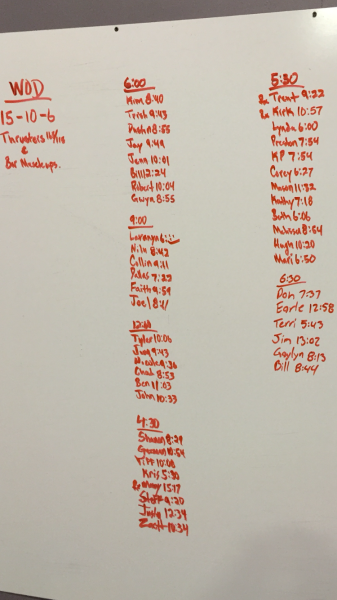 WOD
15-10-6
Thrusters
&
Bar Muscleups.
6:00
Kim 8:40
Trish 9:43
Dustin 8:55
Jay 9:49
Jenn 10:01
Bill 12:24
Robert 10:04
Gwyn 8:55
9:00
Nila 8:42
Collin 9:11
7:22
Faith 9:59
Joel 8:41
12:00
Tyler 10:06
9:43
Nicole 9:36
Chad 8:53
Ben 11:03
John 10:33
4:30
Shawn 8:29
10:54
Tiff 10:08
Kris 5:30
Rx 15:17
Steff 9:20
12:34
Zach 10:34
5:30
Rx Trent 9:22
Rx Kirk 10:57
Lynda 6:00
Preston 7:54
KP 7:54
Corey 6:27
Mason 11:32
Kathy 7:18
Beth 6:06
Melissa 8:54
Hugh 10:20
Mari 6:50
6:30
Don 7:37
Earle 12:58
Terri 5:43
Jim 13:02
Gaylyn 8:13
Bill 8:44